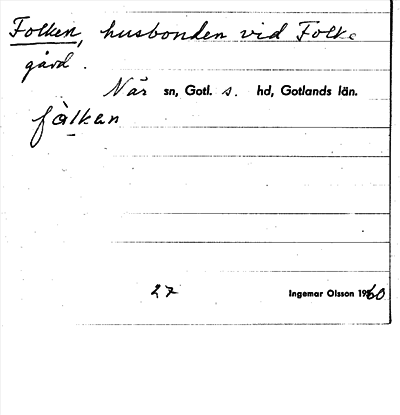 Folken, husbonden vid Folke
gård.
När sn, Gotl. s. hd, Gotlands län.
fålkan
27 Ingemar Olsson 1960